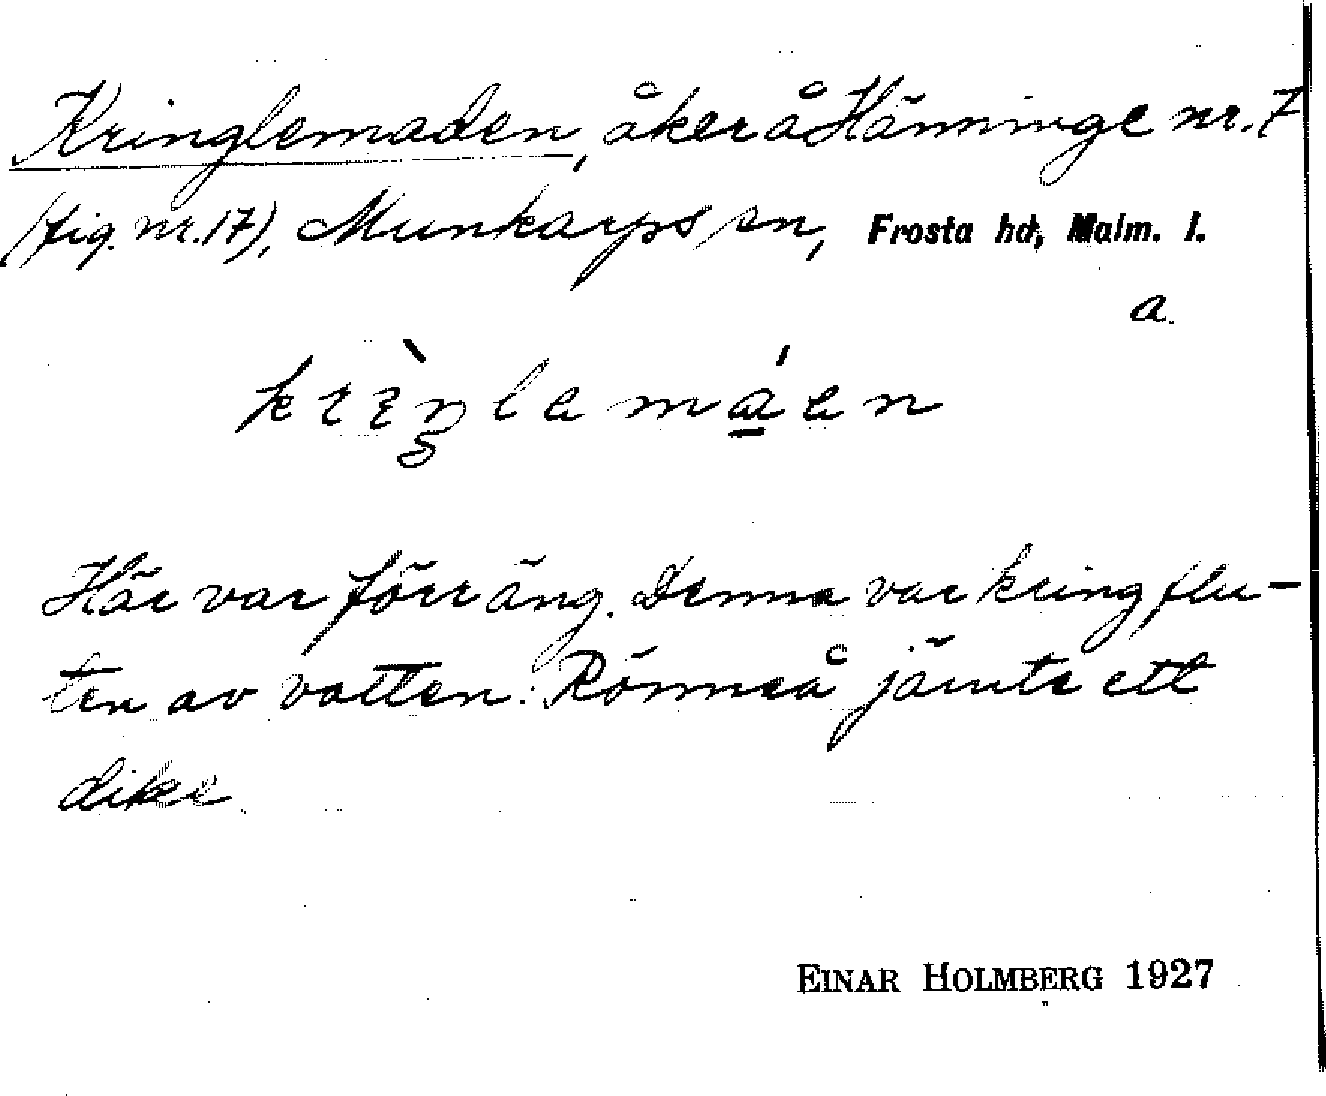 Kringlemaden, åker å Hänninge nr. 7
(fig. nr. 17), Munkarps sn, Frosta hd, Malm. l.
a.
Här var förr äng. Denna var kringflu-
ten av vatten: Rönneå jämte ett
dike.
EINAR HOLMBERG 1927